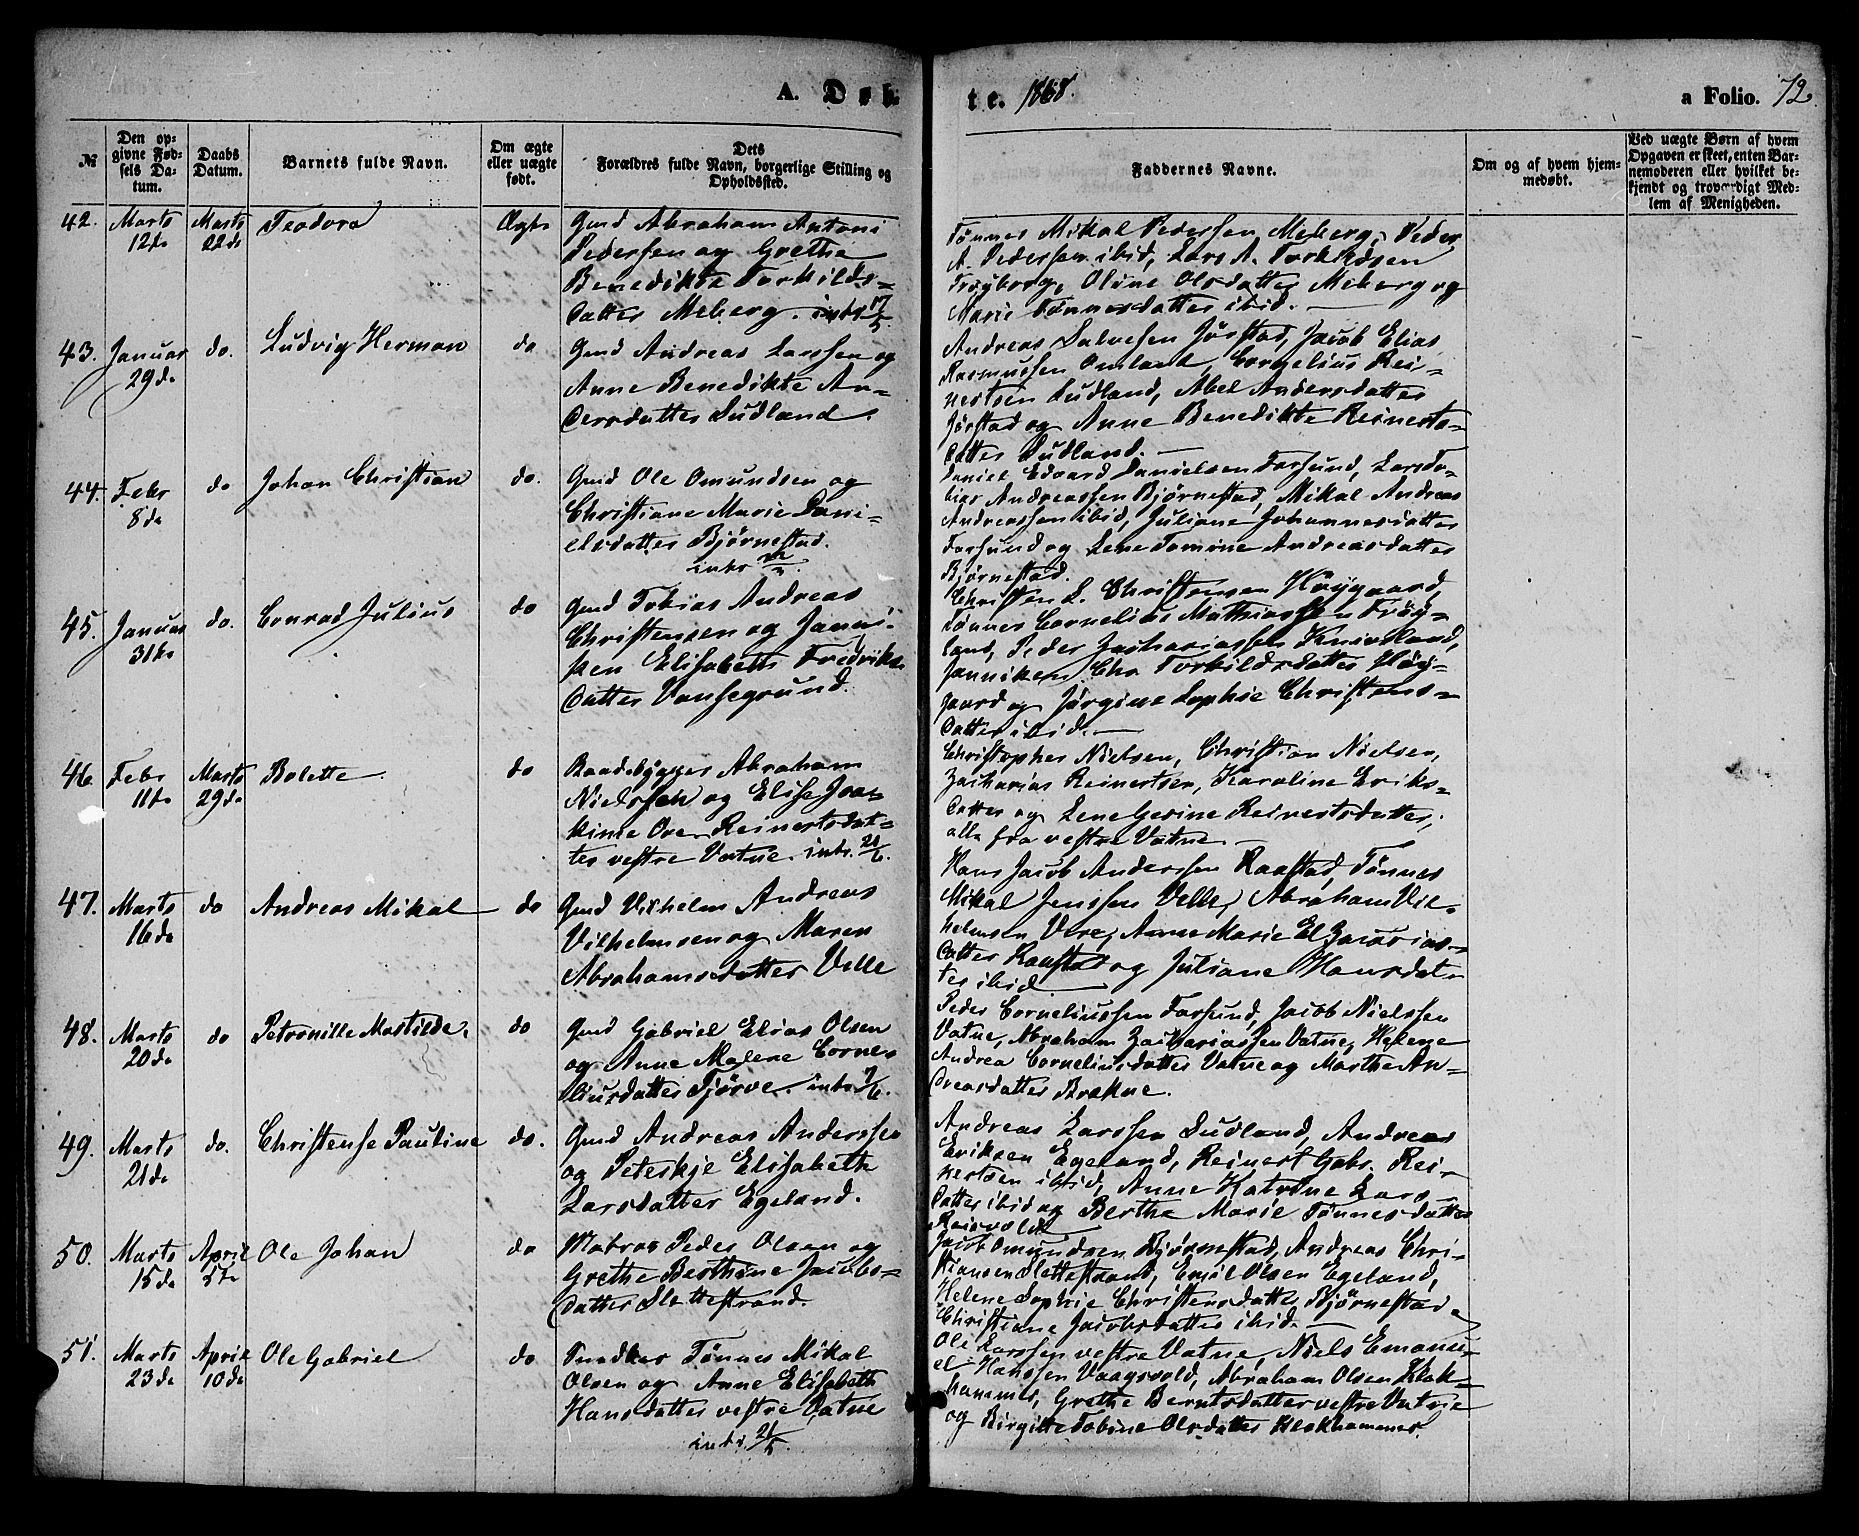 A. Døb-
te. 1868.
a Folio. 72.
№
Den op-
givne Fød-
sels Da-
tum.
Daabs
Datum.
Barnets fulde Navn.
Om ægte
eller uægte
født.
Dets
Forældres fulde Navn, borgerlige Stilling og
Opholdssted.
Faddernes Navne.
Om og af hvem hjem-
medøbt.
Ved uægte Børn af hvem
Opgaven er skeet, enten Bar-
nemoderen eller hvilket be-
kjendt og troværdigt Med-
lem af Menigheden.
42. Marts 12te Marts 22de Teodora Ægte
Gmd Abraham Antoni
Pedersen og Grethe
Benedikte Torkilds-
datter Meberg. intr 17/5.
Tønnes Mikal Pedersen Meberg, Peder
A. Pedersen ibid, Lars A. Torkildsen
Frøyborg, Oline Olsdatter Meberg og
Marie Tønnesdatter ibid.
43. Januar 29de do. Ludvig Herman do
Gmd Andreas Larssen og
Anne Benedikte An-
dersdatter Sudland.
Andreas Salvesen Jørstad, Jacob Elias
Rasmussen Omland, Cornelius Rei-
nertsen Sudland, Abel Andersdatter
Jørstad og Anne Benedikte Reinerts-
datter Sudland.
44. Febr 8de do Johan Christian do.
Gmd Ole Omundsen og
Christiane Marie Dani-
elsdatter Bjørnestad.
intr
Daniel Edvard Danielsen Farsund, Lars To-
bias Andreassen Bjørnestad, Mikal Andreas
Andreassen ibid, Juliane Johannesdatter
Farsund og Lene Tomine Andreasdatter
Bjørnestad.
45. Januar 31te do. Conrad Julius do
Gmd Tobias Andreas
Christensen og Janni-
ken Elisabeth Fredriks
datter Vansegrund.
Christen L. Christensen Høygaard,
Tønnes Cornelius Mathiassen Frøy-
land, Peder Zachariassen Knivsland,
Janniken Chr Torkildsdatter Høy-
gaard og Jørgine Sophie Christens-
datter ibid.
46. Febr 11te Marts 29de Bolette do
Baadebygger Abraham
Nielssen og Elise Joa-
kime Ove Reinertsdat-
ter vestre Vatne. intr. 21/6.
Christopher Nielsen, Christian Nielsen,
Zacharias Reinertsen, Karoline Eriks-
datter og Lene Gesine Reinertsdatter,
alle fra vestre Vatne.
47. Marts 16de do Andreas Mikal do
Gmd Vilhelm Andreas
Vilhelmsen og Maren
Abrahamsdatter Velle
Hans Jacob Anderssen Raastad, Tønnes
Mikal Jenssen Velle, Abraham Vil-
helmsen Vere, Anne Marie El Zacarias-
datter Raastad og Juliane Hansdat-
ter ibid
48. Marts 20de do Petronille Mastilde. do
Gmd Gabriel Elias Olsen
og Anne Malene Corne-
liusdatter Tjørve. intr 7/6.
Peder Corneliussen Farsund, Jacob Nielssen
Vatne, Abraham Zachariassen Vatne, Helene
Andrea Corneliusdatter Vatne og Marthe An-
dreasdatter Brekne.
49. Marts 21de do. Christense Pauline do.
Gmd Andreas Anderssen
og Peterskje Elisabeth
Larsdatter Egeland.
Andreas Larssen Sudland, Andreas
Eriksen Egeland, Reinert Gabr. Rei-
nertsen ibid, Anne Katrine Lars-
datter ibid og Berthe Marie Tønnesdatter
50. Marts 15de April 5te Ole Johan do
Matros Peder Olsen og
Grethe Berthine Jacobs-
datter Slettestrand.
Jacob Omundsen Bjørnestad, Andreas Chri-
stiansen Slettestrand, Emil Olsen Egeland,
Helene Sophie Christensdatter Bjørnestad
Christiane Jacobsdatter ibid.
51. Marts 23de April 10de Ole Gabriel do
Snedker Tønnes Mikal
Olsen og Anne Elisabeth
Hansdatter vestre Vatne
intr. 21/5.
Ole Larssen vestre Vatne, Niels Emanu-
el Hanssen Vaagsvold, Abraham Olsen Klek-
hammer, Grethe Berntsdatter vestre Vatne
og Birgitte Tobine Olsdatter Klekhammer.